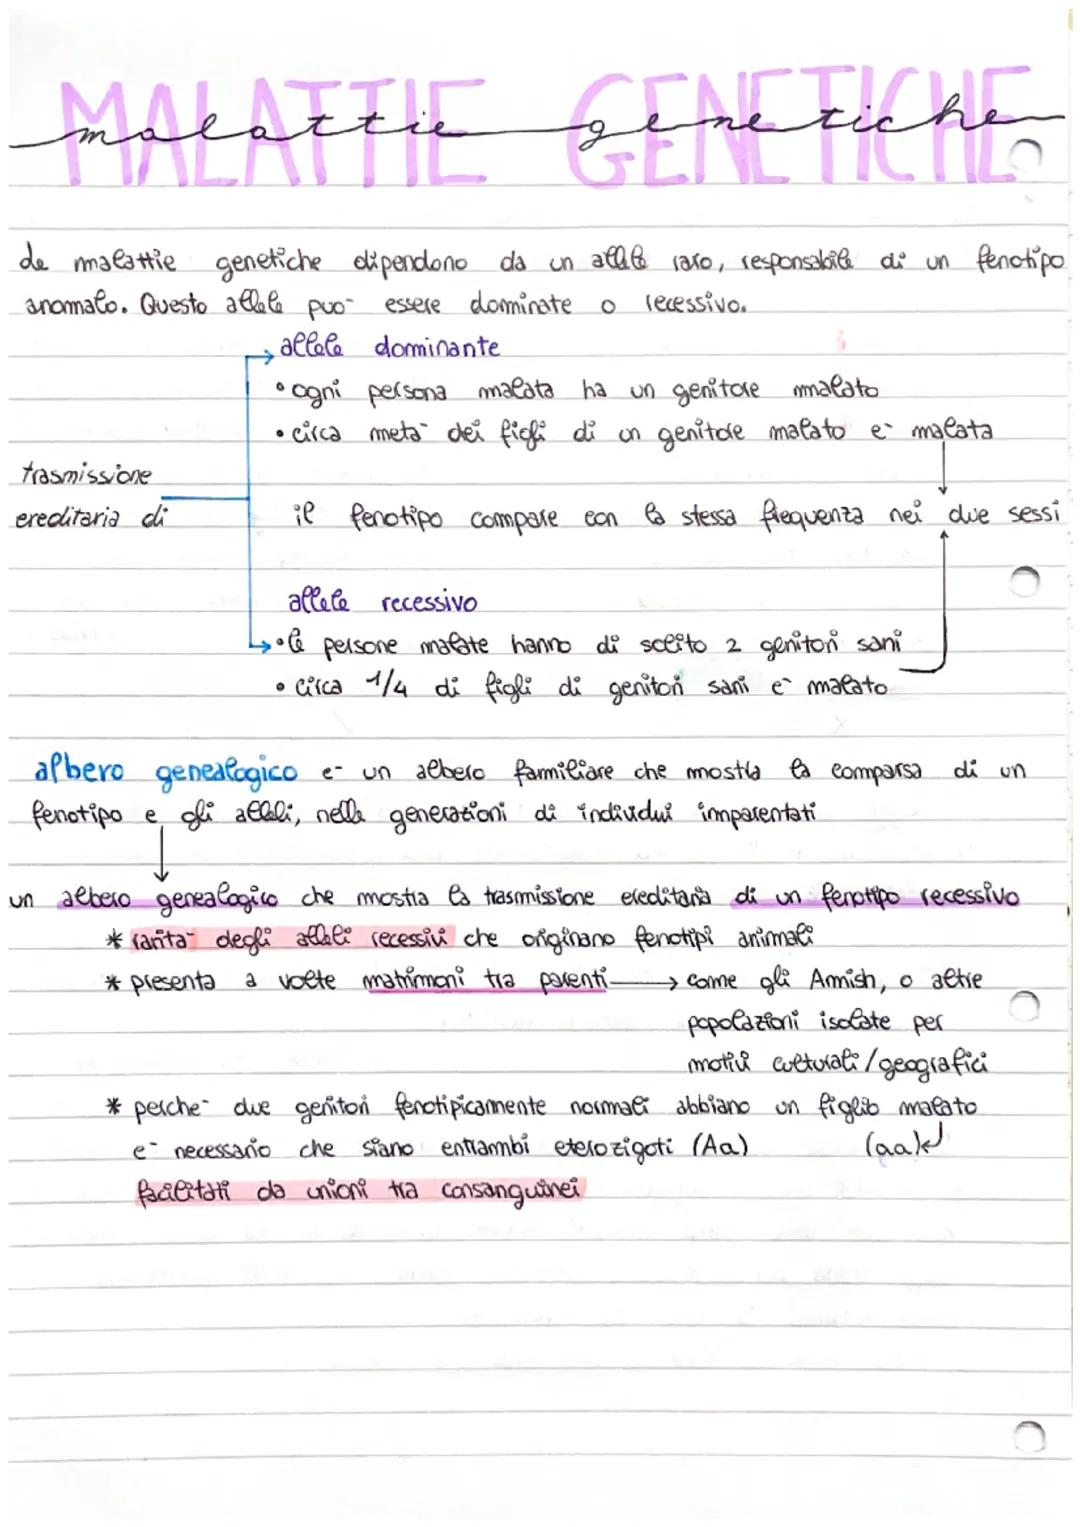 MALATTIE GENETICHE
malattie genetiche
Le malattie genetiche dipendono da un allele raro, responsabile di un fenotipo
anomalo. Questo allele puo- essere dominate o recessivo.
allele dominante
• ogni persona malata ha un genitore mmalato
• circa meta` dei figli di un genitore malato e` malata
trasmissione
ereditaria di
il fenotipo compare con la stessa frequenza nei due sessi
allele recessivo
• le persone malate hanno di solito 2 genitori sani
• circa 1/4 di figli di genitori sani e` malato
albero genealogico e- un albero familiare che mostra la comparsa di un
fenotipo e gli alleli, nelle generazioni di individui imparentati
un albero genealogico che mostra la trasmissione ereditaria di un fenotipo recessivo
* rarita- degli alleli recessivi che originano fenotipi animali
* presenta a volte matrimoni tra parenti → come gli Amish, o altre
popolazioni isolate per
motivi culturali/geografici
* perche- due genitori fenotipicamente normali abbiano un figlio malato
e- necessario che siano entrambi eterozigoti (Aa) (aa)
facilitati da unioni tra consanguinei